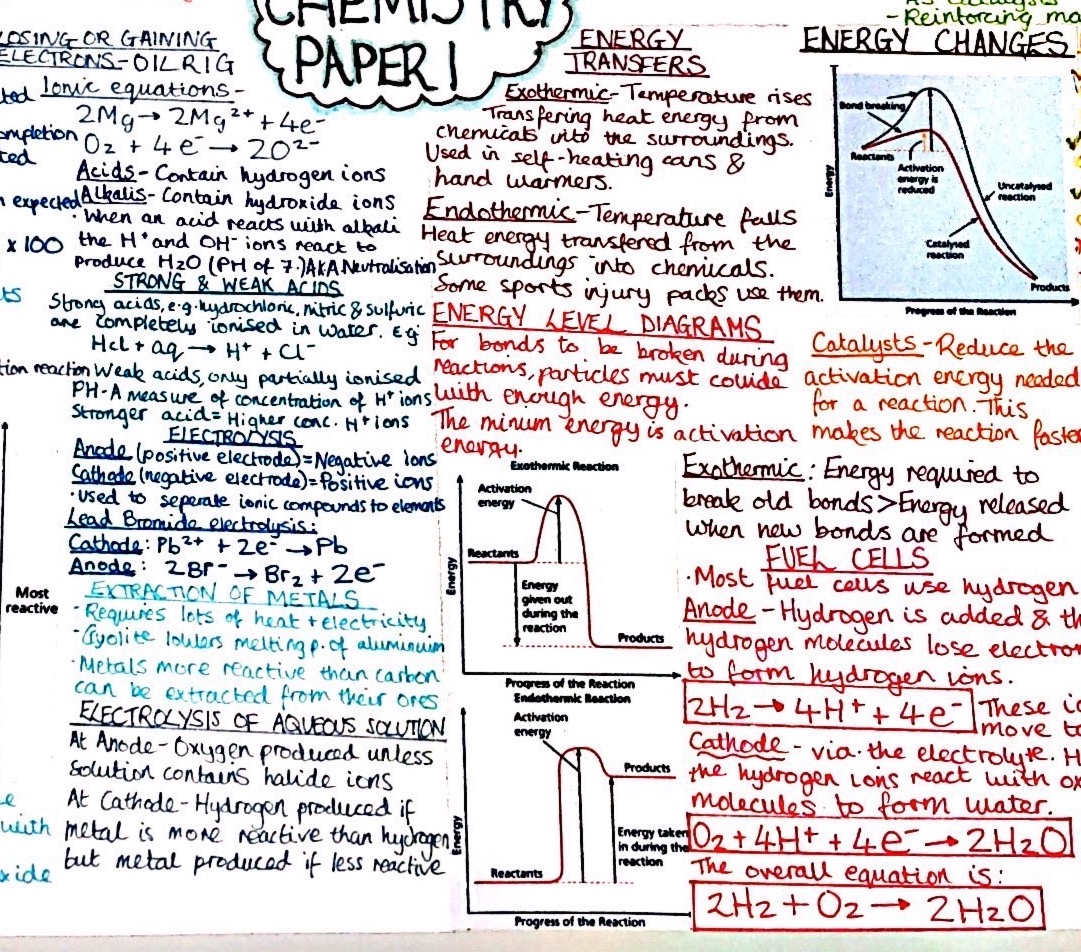 CHEMISTRY
PAPER 1
LOSING OR GAINING
ELECTRONS-OILRIG
Ionic equations-
2Mg→ 2Mg²⁺ + 4e⁻
O₂ + 4e⁻ → 2O²⁻
Acids- Contain hydrogen ions
Alkalis- Contain hydroxide ions
· When an acid reacts with alkali
the H⁺ and OH⁻ ions react to
produce H₂O (PH of 7.) AKA Neutralisation
STRONG & WEAK ACIDS
Strong acids, e.g. hydrochloric, nitric & sulfuric
are completely ionised in water. Eg
Hcl + aq → H⁺ + Cl⁻
Weak acids, only partially ionised
PH-A measure of concentration of H⁺ ions
Stronger acid = Higher conc. H⁺ ions
ELECTROLYSIS
Anode (positive electrode)=Negative ions
Cathode (negative electrode)=Positive ions
· Used to seperate ionic compounds to elements
Lead Bromide electrolysis:
Cathode: Pb²⁺ + 2e⁻ → Pb
Anode: 2Br⁻ → Br₂ + 2e⁻
EXTRACTION OF METALS
· Requires lots of heat + electricity
· Cyolite lowers melting p. of aluminium
· Metals more reactive than carbon
can be extracted from their ores
ELECTROLYSIS OF AQUEOUS SOLUTION
At Anode-Oxygen produced unless
Solution contains halide ions
At Cathode-Hydrogen produced if
metal is more reactive than hydrogen
but metal produced if less reactive
ted
ompletion
ted
n expected
x 100
ts
tion reaction
Most
reactive
e
with
xide
ENERGY
TRANSFERS
Exothermic-Temperature rises
Transfering heat energy from
chemicals into the surroundings.
Used in self-heating cans &
hand warmers.
Endothermic-Temperature falls
Heat energy transfered from the
surroundings into chemicals.
Some sports injury packs use them.
ENERGY LEVEL DIAGRAMS
For bonds to be broken during
reactions, particles must collide
with enough energy.
The minum energy is activation
energy.
Exothermic Reaction
Activation
energy
Reactants
Energy
given out
during the
reaction
Products
Energy
Progress of the Reaction
Endothermic Reaction
Activation
energy
Products
Energy taken
in during the
reaction
Reactants
Energy
Progress of the Reaction
- Reinforcing ma
ENERGY CHANGES
Bond breaking
Reactants
Activation
energy is
reduced
Uncatalysed
reaction
Catalysed
reaction
Products
Energy
Progress of the Reaction
Catalysts-Reduce the
activation energy needed
for a reaction. This
makes the reaction faster
Exothermic: Energy required to
break old bonds>Energy released
when new bonds are formed
FUEL CELLS
· Most fuel cells use hydrogen
Anode - Hydrogen is added & th
hydrogen molecules lose electron
to form hydrogen ions.
2H₂ → 4H⁺ + 4e⁻ These io
move to
Cathode - via the electrolyte. H
the hydrogen ions react with ox
molecules to form water.
O₂ + 4H⁺ + 4e⁻ → 2H₂O
The overall equation is:
2H₂ + O₂ → 2H₂O